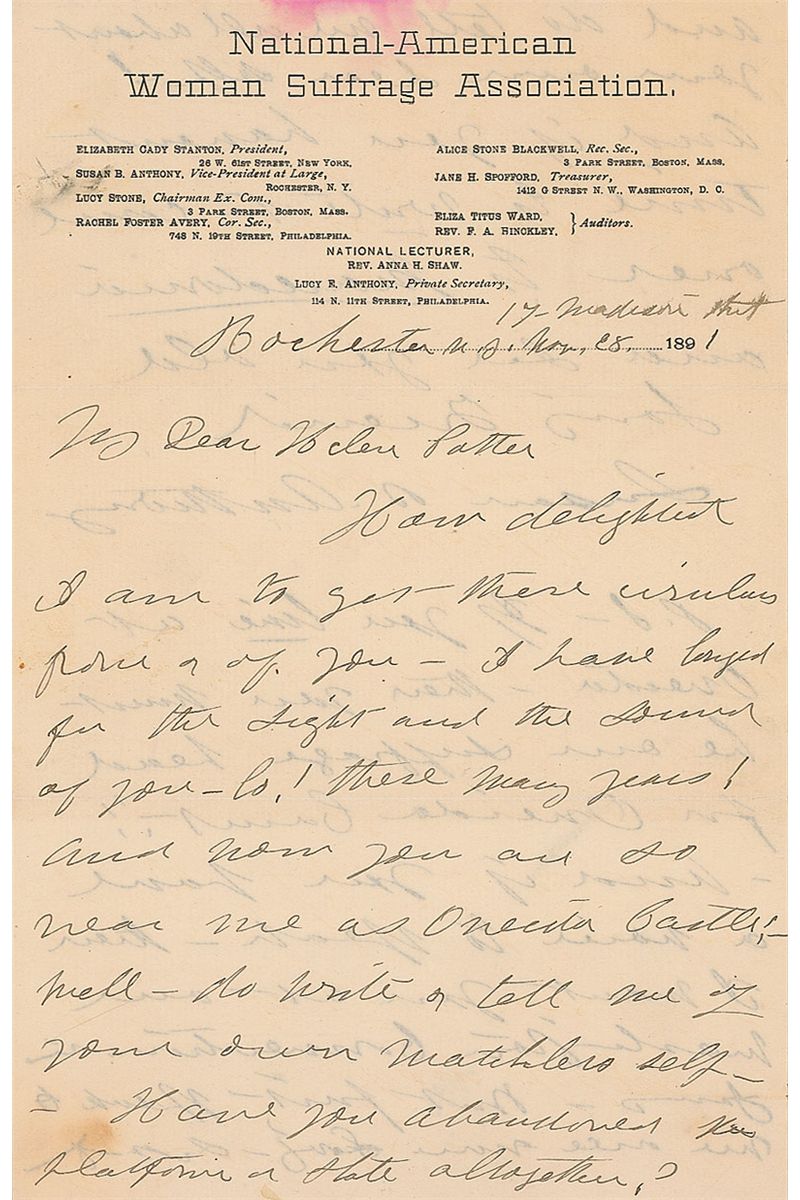 National-American
Woman Suffrage Association.
ELIZABETH CADY STANTON, President,
26 W. 61ST STREET, NEW YORK.
SUSAN B. ANTHONY, Vice-President at Large,
ROCHESTER, N. Y.
LUCY STONE, Chairman Ex. Com.,
3 PARK STREET, BOSTON, MASS.
RACHEL FOSTER AVERY, Cor. Sec.,
748 N. 19TH STREET, PHILADELPHIA.
ALICE STONE BLACKWELL, Rec. Sec.,
3 PARK STREET, BOSTON, MASS.
JANE H. SPOFFORD, Treasurer,
1412 G STREET N. W., WASHINGTON, D. C.
ELIZA TITUS WARD,
REV. F. A. HINCKLEY, } Auditors.
NATIONAL LECTURER,
REV. ANNA H. SHAW.
LUCY E. ANTHONY, Private Secretary,
114 N. 11TH STREET, PHILADELPHIA.
17 Madison street
Rochester N.Y. Nov. 28. 1891
My Dear Helen Potter
How delighted
I am to get these circulars
from & of you — I have longed
for the sight and the sound
of you — lo! these many years!
and now you are so
near me as Oneida Castle! —
well — do write & tell me of
your own matchless self —
— Have you abandoned the
platform & state altogether?